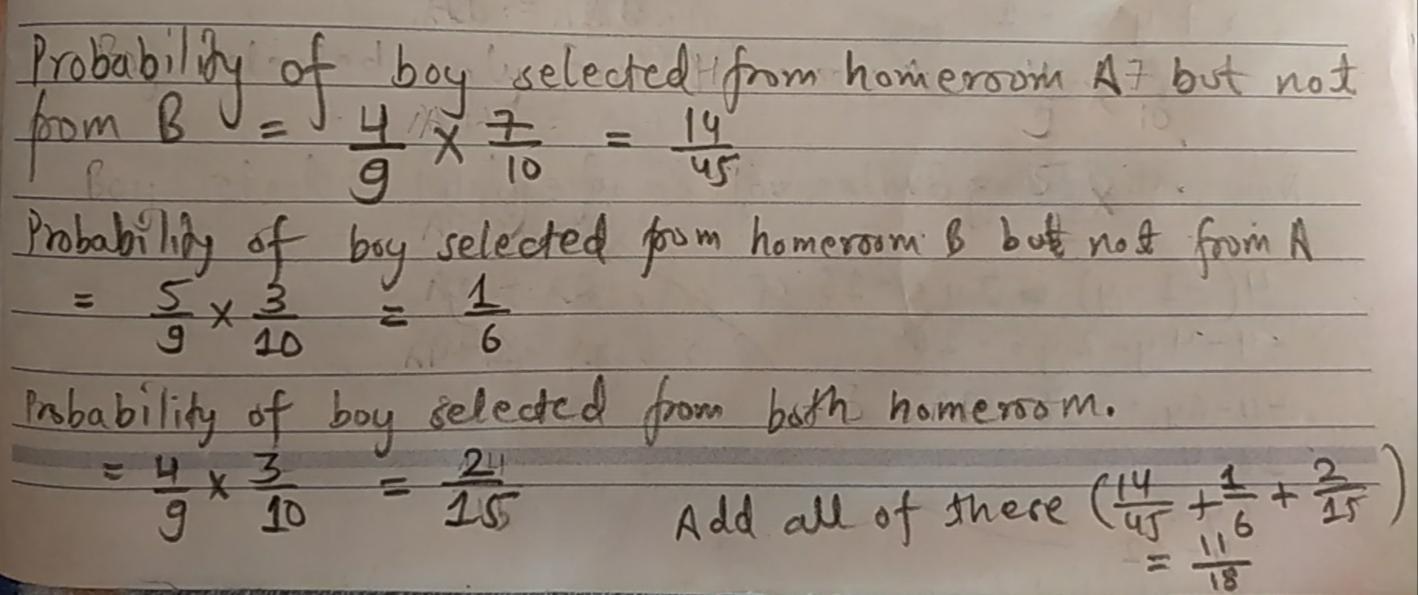 Probability of boy selected from homeroom A but not
from B = 4/9 × 7/10 = 14/45
Probability of boy selected from homeroom B but not from A
= 5/9 × 3/10 = 1/6
Probability of boy selected from both homeroom.
= 4/9 × 3/10 = 2/15 Add all of these (14/45 + 1/6 + 2/15)
= 11/18